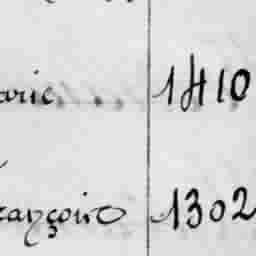 arie.... 1410
rançois 1302